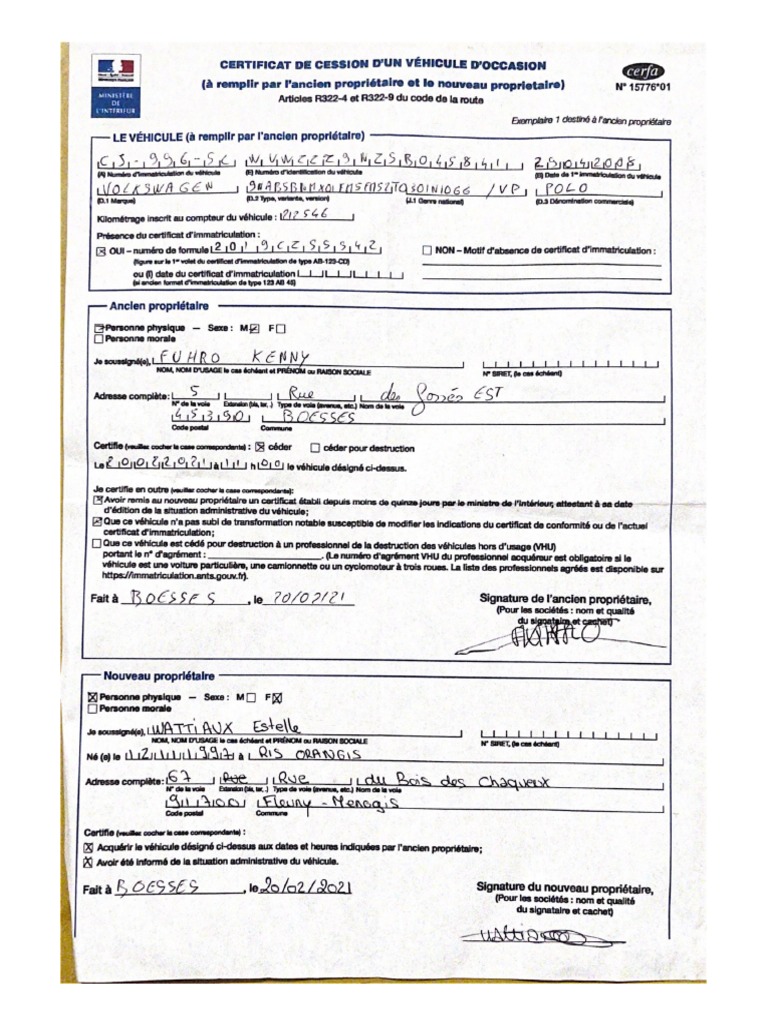 CERTIFICAT DE CESSION D'UN VÉHICULE D'OCCASION
(à remplir par l'ancien propriétaire et le nouveau proprietaire)
Articles R322-4 et R322-9 du code de la route
cerfa
N° 15776*01
MINISTÈRE
DE
L'INTÉRIEUR
Exemplaire 1 destiné à l'ancien propriétaire
LE VÉHICULE (à remplir par l'ancien propriétaire)
CS-996-SC WVWZZZ9NZ8B045841 29042008
(A) Numéro d'immatriculation du véhicule (E) Numéro d'identification du véhicule (B) Date de 1re immatriculation du véhicule
VOLKSWAGEN /VP POLO
(D.1 Marque) (D.2 Type, variante, version) (J.1 Genre national) (D.3 Dénomination commerciale)
Kilométrage inscrit au compteur du véhicule : 212546
Présence du certificat d'immatriculation :
OUI – numéro de formule 2019CZ55542 NON – Motif d'absence de certificat d'immatriculation :
(figure sur le 1er volet du certificat d'immatriculation de type AB-123-CD)
ou (I) date du certificat d'immatriculation
(si ancien format d'immatriculation de type 123 AB 45)
Ancien propriétaire
Personne physique – Sexe : M F
Personne morale
Je soussigné(e), FUHRO KENNY
NOM, NOM D'USAGE le cas échéant et PRÉNOM ou RAISON SOCIALE N° SIRET, (le cas échéant)
Adresse complète : 5 Rue des fossés EST
N° de la voie Extension (bis, ter, .) Type de voie (avenue, etc.) Nom de la voie
45390 BOESSES
Code postal Commune
Certifie (veuillez cocher la case correspondante) : céder céder pour destruction
Le 20022021 à 11h00 le véhicule désigné ci-dessus.
Je certifie en outre (veuillez cocher la case correspondante):
Avoir remis au nouveau propriétaire un certificat établi depuis moins de quinze jours par le ministre de l'intérieur, attestant à sa date
d'édition de la situation administrative du véhicule;
Que ce véhicule n'a pas subi de transformation notable susceptible de modifier les indications du certificat de conformité ou de l'actuel
certificat d'immatriculation;
Que ce véhicule est cédé pour destruction à un professionnel de la destruction des véhicules hors d'usage (VHU)
portant le n° d'agrément : . (Le numéro d'agrément VHU du professionnel acquéreur est obligatoire si le
véhicule est une voiture particulière, une camionnette ou un cyclomoteur à trois roues. La liste des professionnels agréés est disponible sur
https://immatriculation.ants.gouv.fr).
Fait à BOESSES , le 20/02/21
Signature de l'ancien propriétaire,
(Pour les sociétés : nom et qualité
du signataire et cachet)
Nouveau propriétaire
Personne physique – Sexe : M F
Personne morale
Je soussigné(e), WATTIAUX Estelle
NOM, NOM D'USAGE le cas échéant et PRÉNOM ou RAISON SOCIALE N° SIRET, (le cas échéant)
Né (e) le 12111997 à RIS ORANGIS
Adresse complète : 67 Rue Rue du Bois des Chaqueux
N° de la voie Extension (bis, ter, .) Type de voie (avenue, etc.) Nom de la voie
91700 Fleury-Merogis
Code postal Commune
Certifie (veuillez cocher la case correspondante) :
Acquérir le véhicule désigné ci-dessus aux dates et heures indiquées par l'ancien propriétaire;
Avoir été informé de la situation administrative du véhicule.
Fait à BOESSES , le 20/02/2021
Signature du nouveau propriétaire,
(Pour les sociétés : nom et qualité
du signataire et cachet)